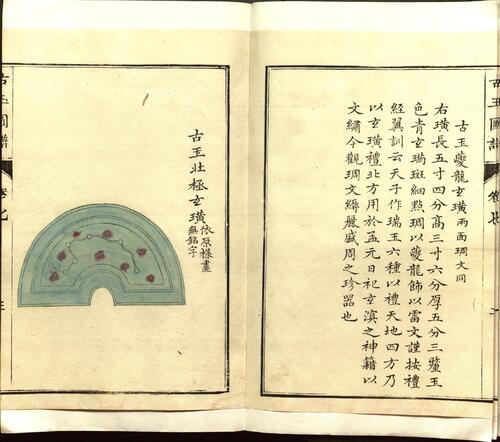 古玉圖譜
卷七
古玉夔龍玄璜兩面琱文同
右璜長五寸四分高三寸六分厚五分三釐玉
色青玄瑞斑細點琱以夔龍飾以雷文謹按禮
經翼訓云天子作瑞玉六種以禮天地四方乃
以玄璜禮北方用於孟元日祀玄滇之神籍以
文繡今觀琱文縟麗盛周之珍器也
古玉壯極玄璜依原樣畫
無銘字
古玉圖譜
卷七